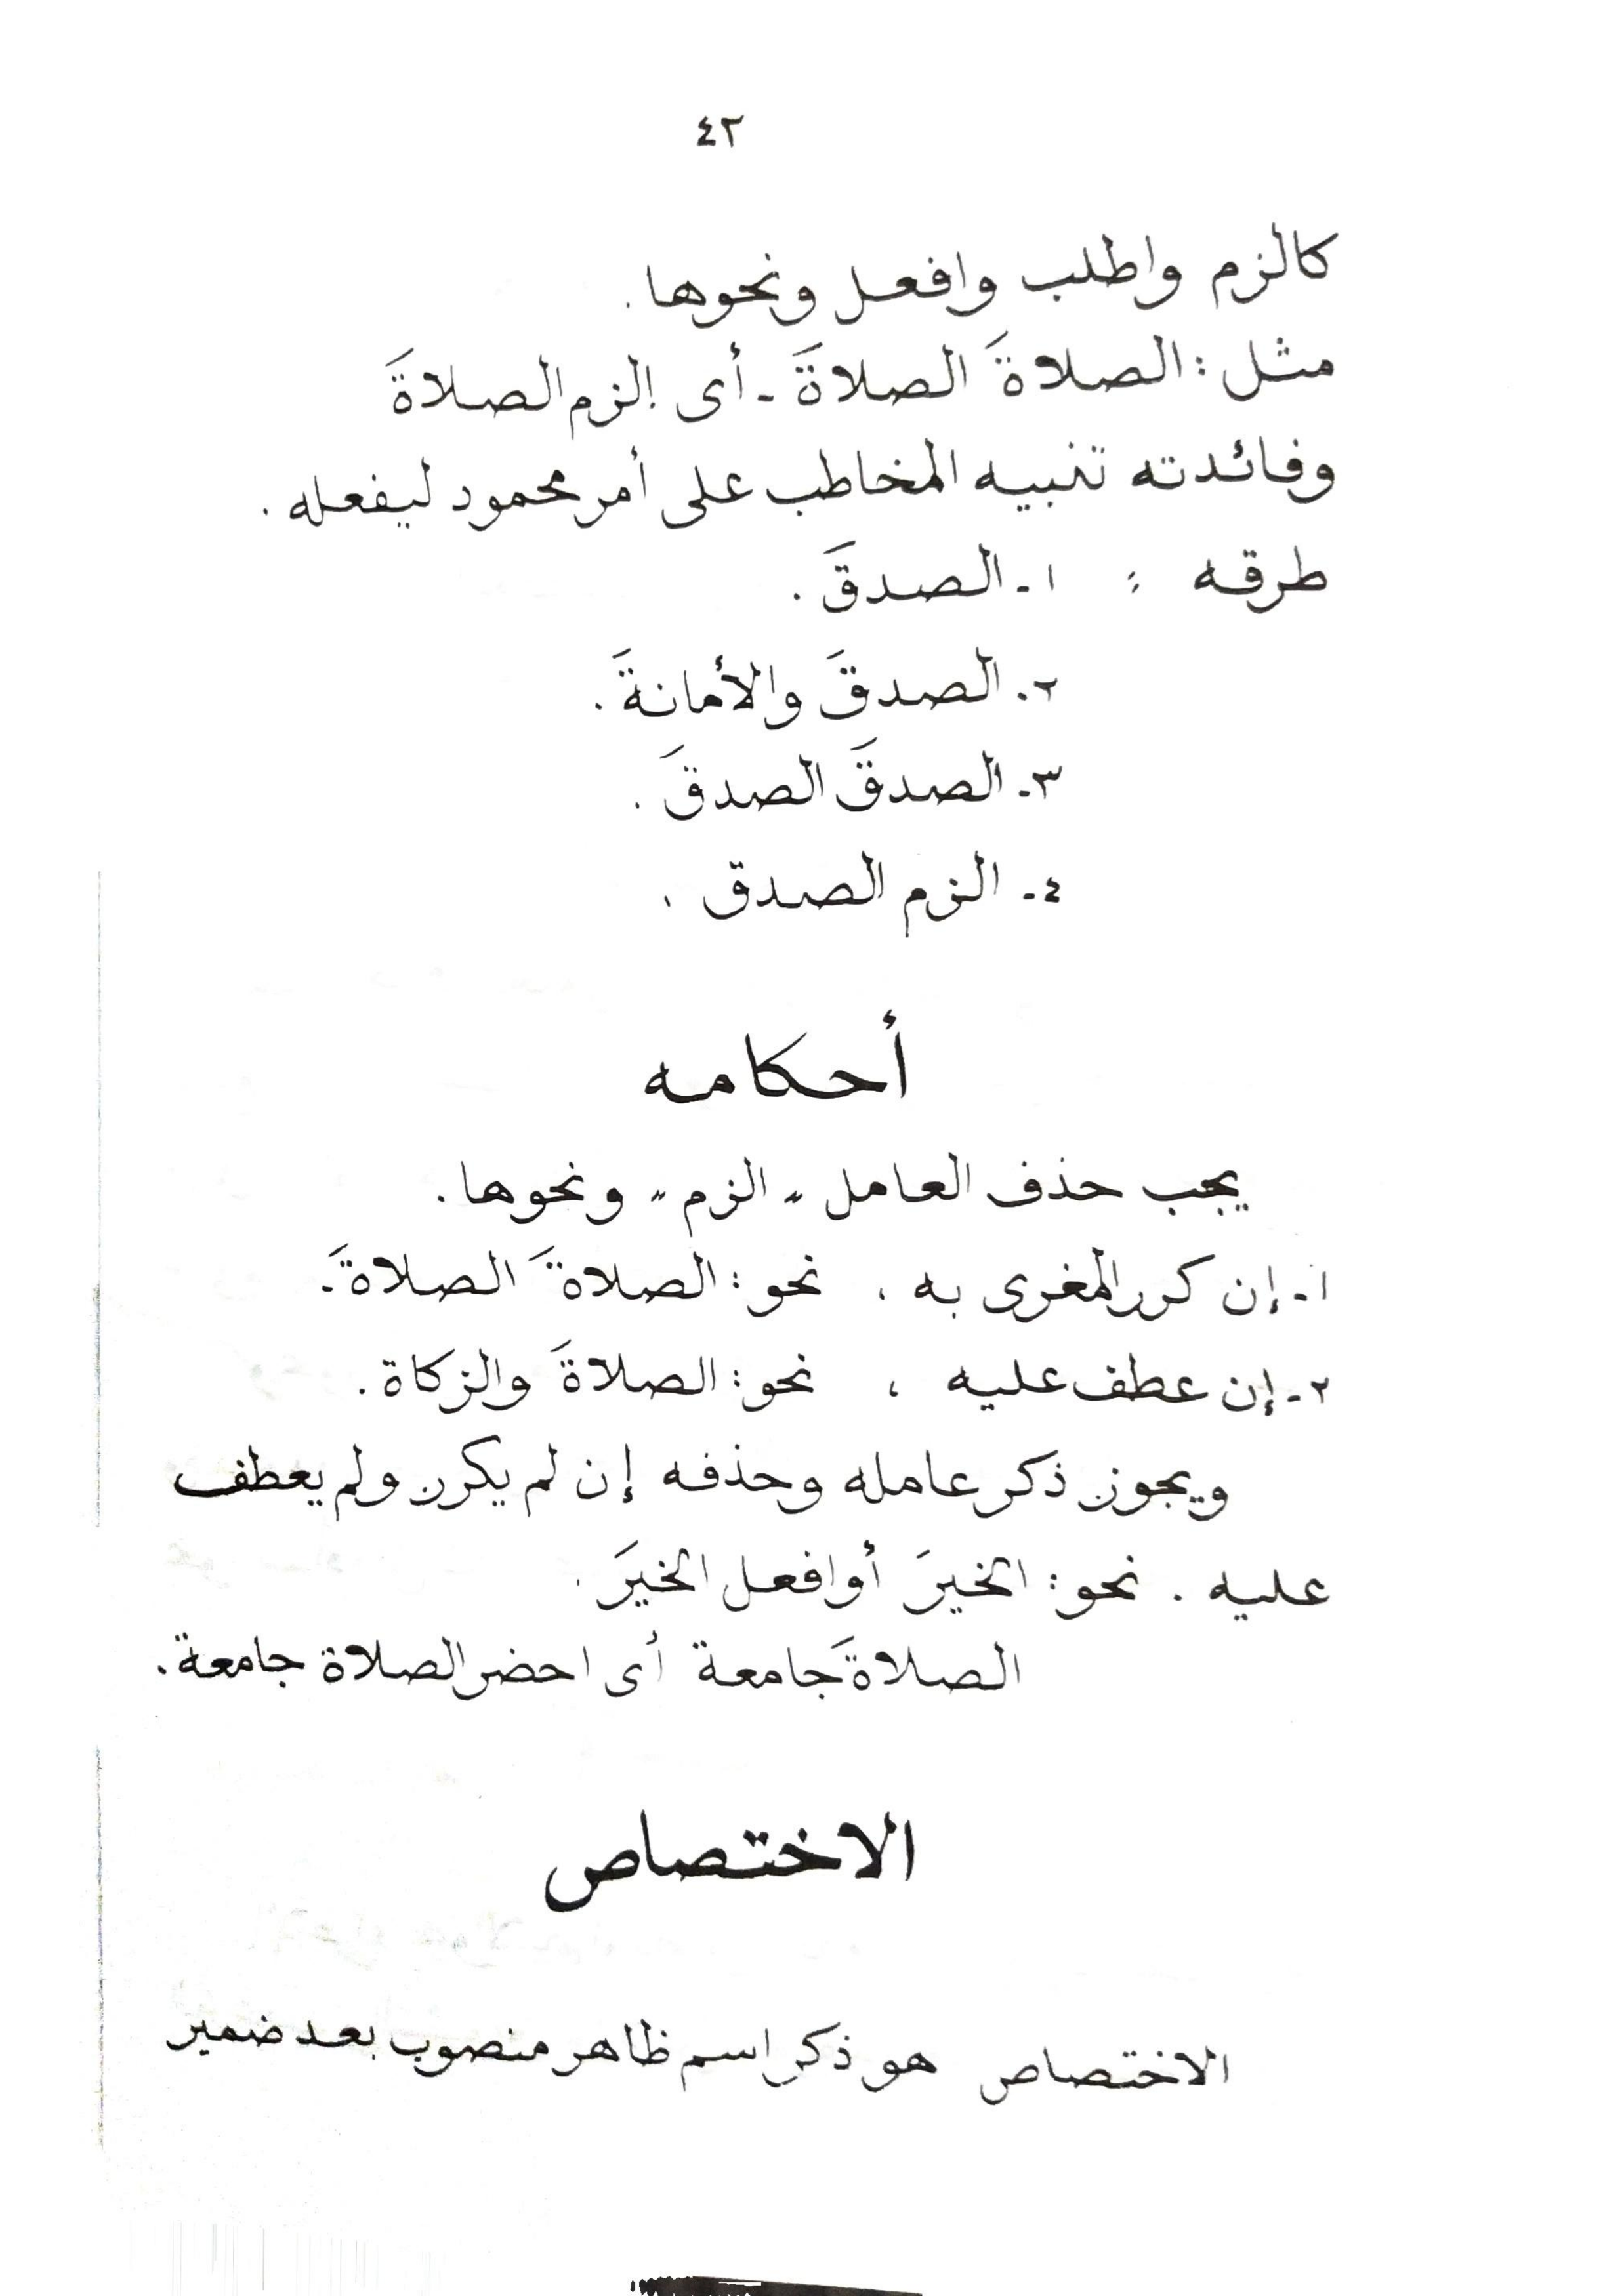 ٤٢
كالزم واطلب وافعل ونحوها.
مثل: الصلاةَ الصلاةَ ـ أى إلزم الصلاةَ
وفائدته تنبيه المخاطب على أمر محمود ليفعله.
طرقه : ١ـ الصدقَ.
٢ـ الصدقَ والأمانةَ.
٣ـ الصدقَ الصدقَ.
٤ـ الزم الصدق.
أحكامه
يجب حذف العامل "الزم" ونحوها.
١ـ إن كرر المغرى به ، نحو: الصلاةَ الصلاةَ.
٢ـ إن عطف عليه ، نحو: الصلاةَ والزكاة.
ويجوز ذكر عامله وحذفه إن لم يكرر ولم يعطف
عليه . نحو: الخيرَ أو افعل الخيرَ.
الصلاةَ جامعة أى احضر الصلاة جامعة.
الاختصاص
الاختصاص هو ذكر اسم ظاهر منصوب بعد ضمير